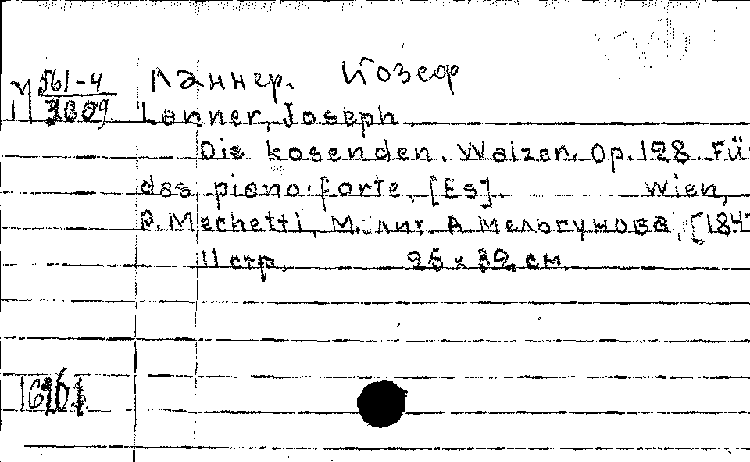 М 561-4 Ланнер. Йозеф
3009 Lanner, Joseph
Die kosenden. Walzen. Op. 128. Für
das piano-forte. [Es]. Wien,
P. Mechetti, М. лит. А Мелогунова,
11 стр. 25 x 32 см